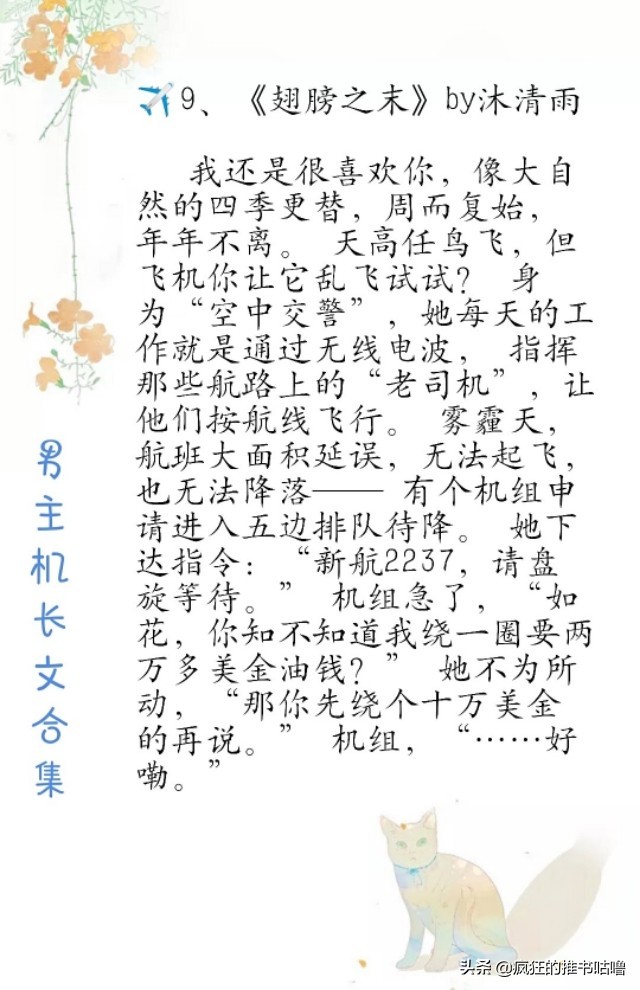 ✈️9、《翅膀之末》by沐清雨
我还是很喜欢你，像大自
然的四季更替，周而复始，
年年不离。 天高任鸟飞，但
飞机你让它乱飞试试？ 身
为“空中交警”，她每天的工
作就是通过无线电波， 指挥
那些航路上的“老司机”，让
他们按航线飞行。 雾霾天，
航班大面积延误，无法起飞，
也无法降落—— 有个机组申
请进入五边排队待降。 她下
达指令：“新航2237，请盘
旋等待。” 机组急了，“如
花，你知不知道我绕一圈要两
万多美金油钱？” 她不为所
动，“那你先绕个十万美金
的再说。” 机组，“……好
嘞。”
男主机长文合集
头条 @疯狂的推书咕噜